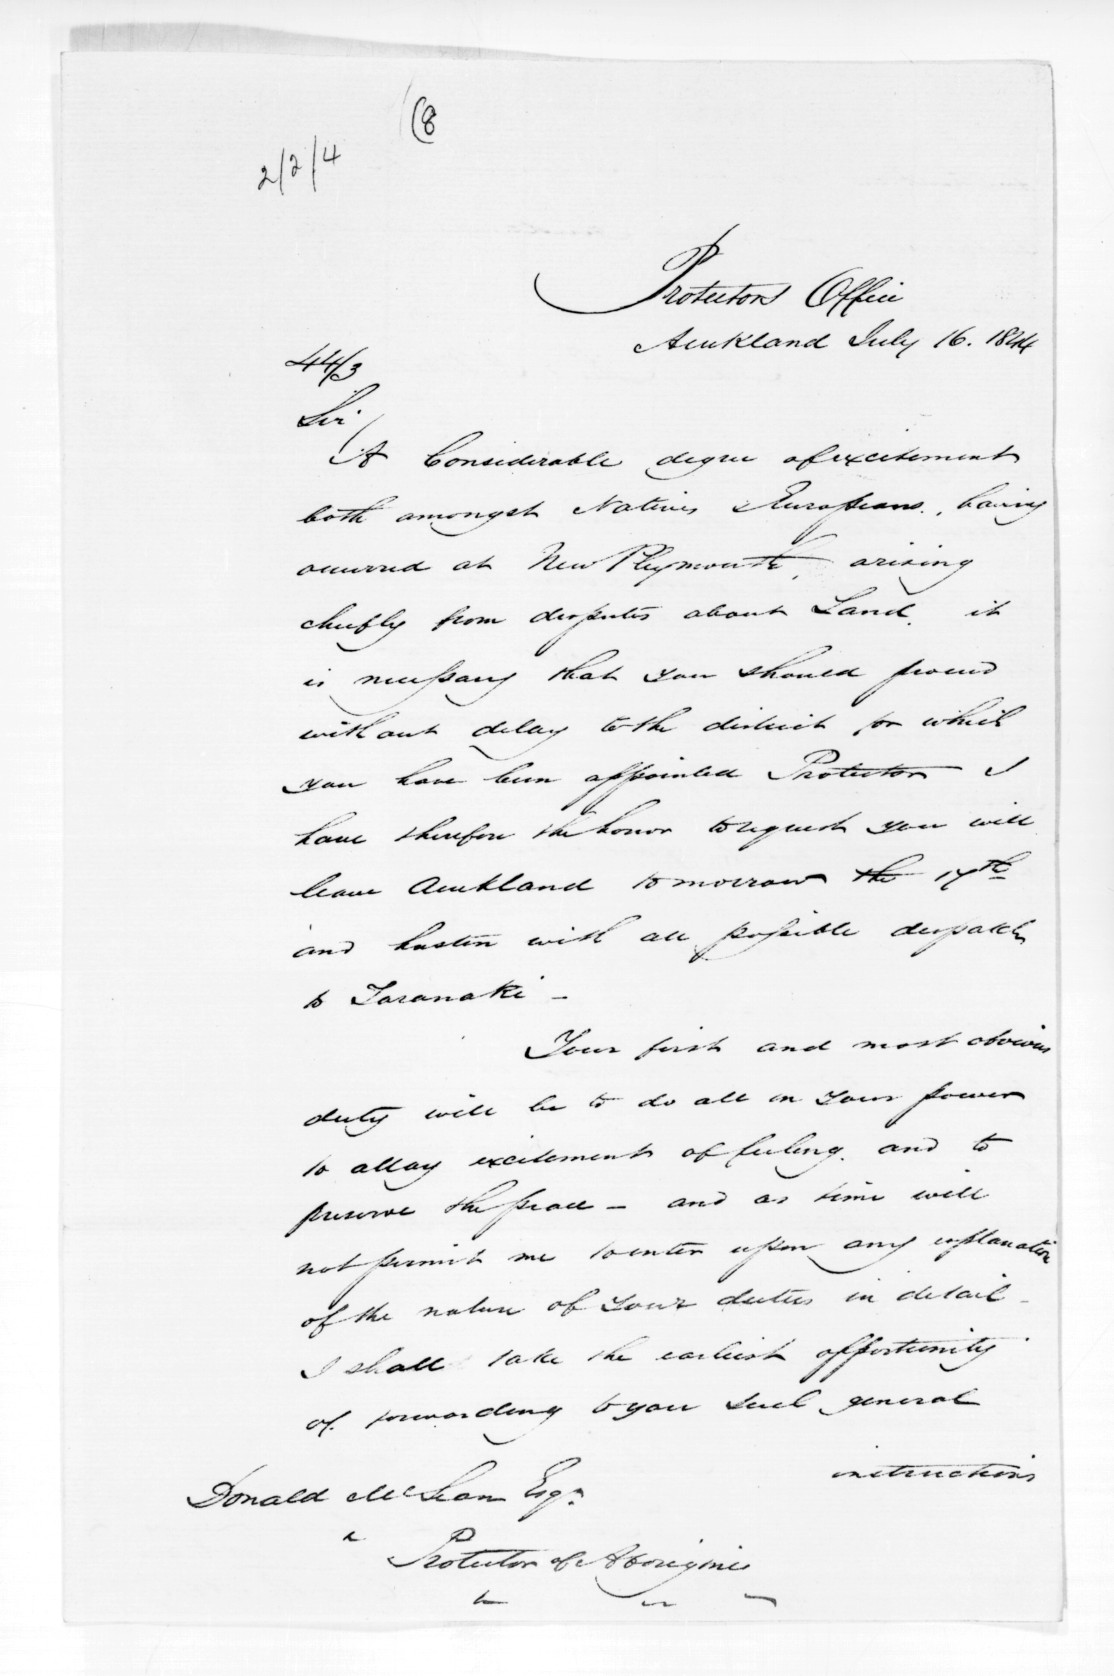 (8
2/2/4
Protectors Office
Auckland July 16. 1844
44/3
Sir
A Considerable degree of excitement
both amongst Natives & Europeans, having
occurred at New Plymouth, arising
chiefly from disputes about Land, it
is necessary that you should proceed
without delay to the district for which
you have been appointed Protector I
have therefore the honor to request you will
leave Auckland tomorrow the 17th
and hasten with all possible despatch
to Taranaki –
Your first and most obvious
duty will be to do all in your power
to allay excitement of feeling, and to
preserve the peace – and as time will
not permit me to enter upon any explanation
of the nature of your duties in detail –
I shall take the earliest opportunity
of forwarding to you such general
instructions
Donald McLean Esqr
Protector of Aborigines